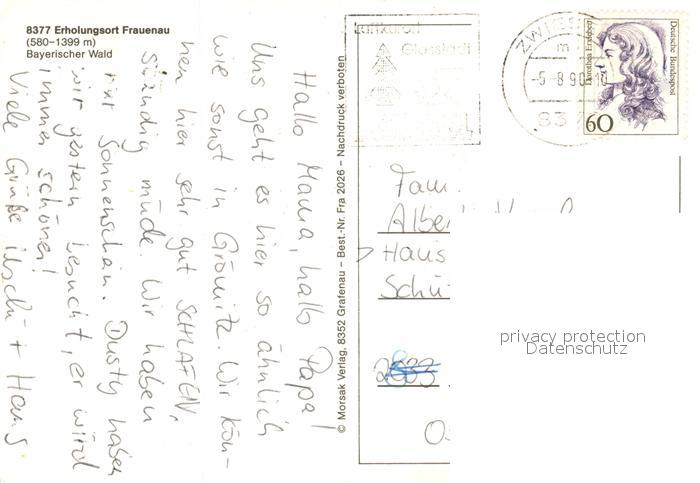 8377 Erholungsort Frauenau
(580–1399 m)
Bayerischer Wald
Hallo Mama, hallo Papa!
Uns geht es hier so ähnlich
wie sonst in Grömitz. Wir kön-
nen hier sehr gut SCHLAFEN,
ständig müde. Wir haben
nur Sonnenschein. Dusty haben
wir gestern besucht, er wird
immer schöner!
Viele Grüße + Hans
© Morsak Verlag, 8352 Grafenau – Best.-Nr. Fra 2026 – Nachdruck verboten
Luftkurort
Glasstadt
ZWIES
-5-8.90
83
Dorothea Erxleben
Deutsche Bundespost
60
Fam.
Albe
Haus
Schü
privacy protection
Datenschutz